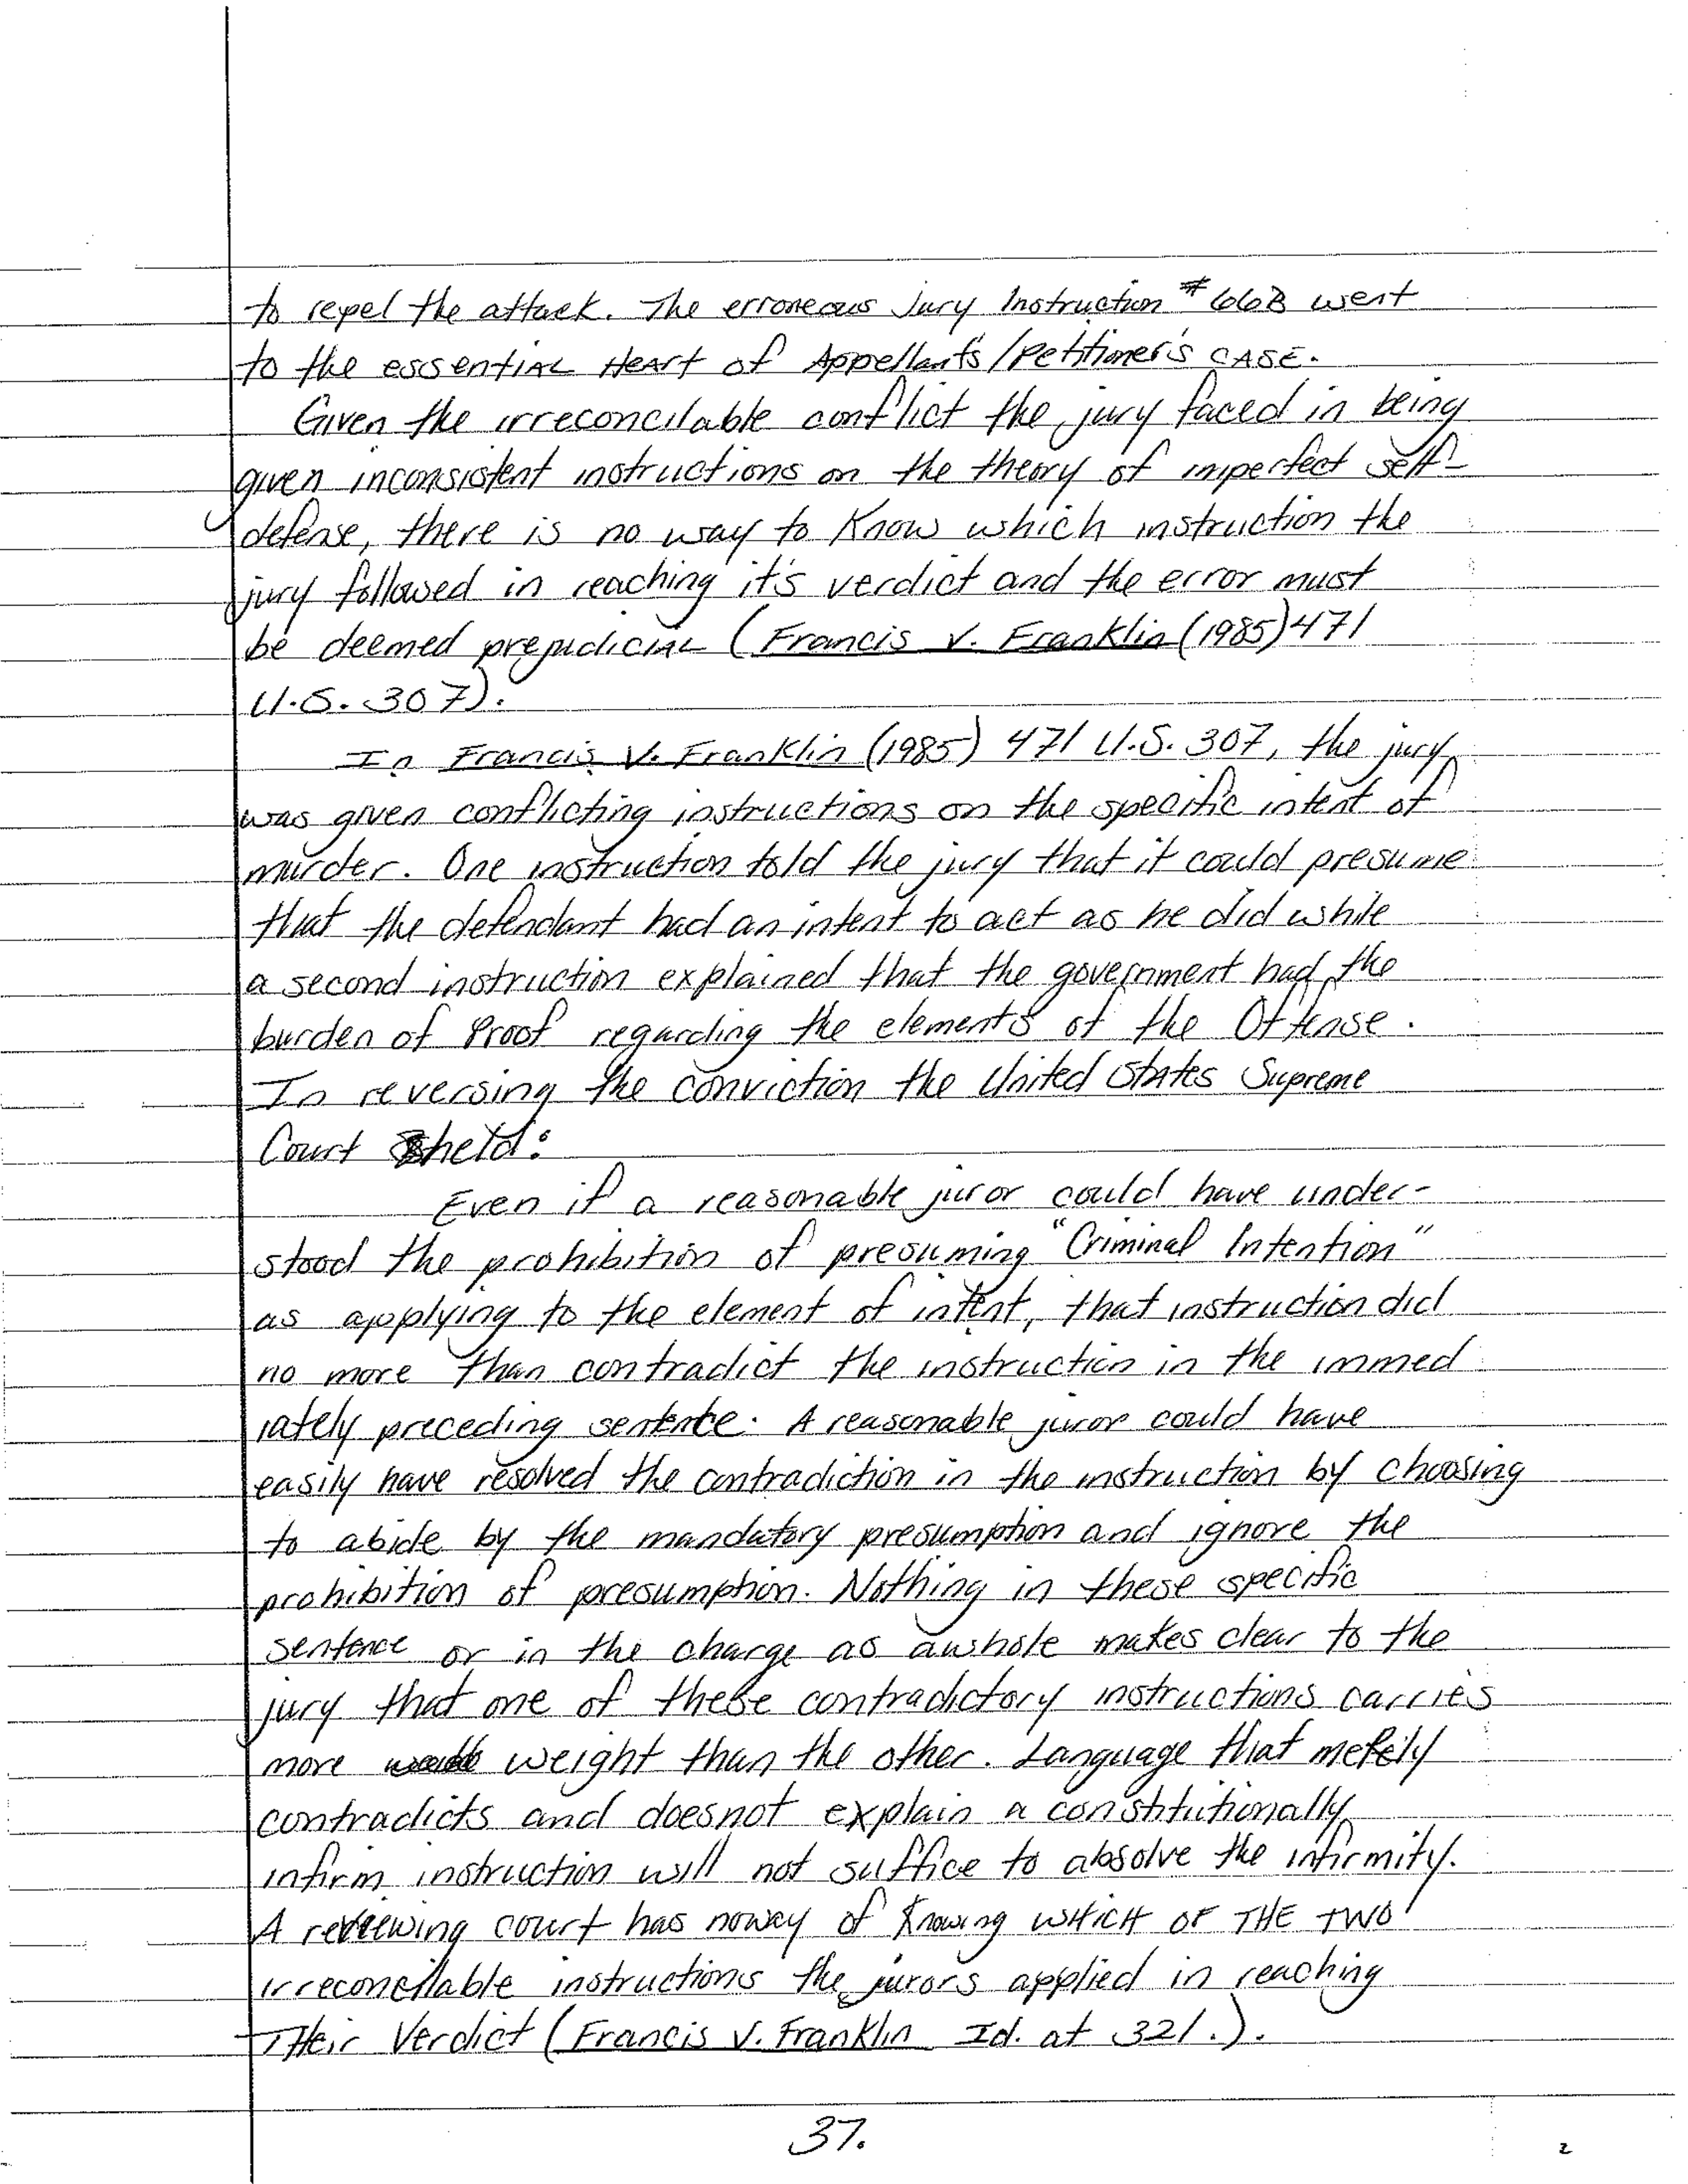 to repel the attack. The erroneous Jury Instruction #66B went
to the essential Heart of Appellant's/Petitioner's CASE.
Given the irreconcilable conflict the jury faced in being
given inconsistent instructions on the theory of imperfect self-
defense, there is no way to Know which instruction the
jury followed in reaching it's verdict and the error must
be deemed prejudicial (Francis v. Franklin (1985) 471
U.S. 307).
In Francis V. Franklin (1985) 471 U.S. 307, the jury
was given conflicting instructions on the specific intent of
murder. One instruction told the jury that it could presume
that the defendant had an intent to act as he did while
a second instruction explained that the government had the
burden of Proof regarding the elements of the Offense.
In reversing the conviction the United States Supreme
Court held:
Even if a reasonable juror could have under-
stood the prohibition of presuming "Criminal Intention"
as applying to the element of intent, that instruction did
no more than contradict the instruction in the immed
iately preceding sentence. A reasonable juror could have
easily have resolved the contradiction in the instruction by choosing
to abide by the mandatory presumption and ignore the
prohibition of presumption. Nothing in these specific
sentence or in the charge as awhole makes clear to the
jury that one of these contradictory instructions carries
more weight than the other. Language that merely
contradicts and doesnot explain a constitutionally
infirm instruction will not suffice to absolve the infirmity.
A reviewing court has noway of Knowing WHICH OF THE TWO
irreconcilable instructions the jurors applied in reaching
THeir Verdict (Francis V. Franklin Id. at 321.).
37.
2